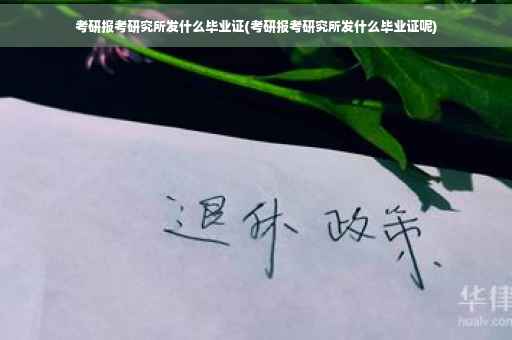 考研报考研究所发什么毕业证(考研报考研究所发什么毕业证呢)
退休 政策
华律
hualv.com